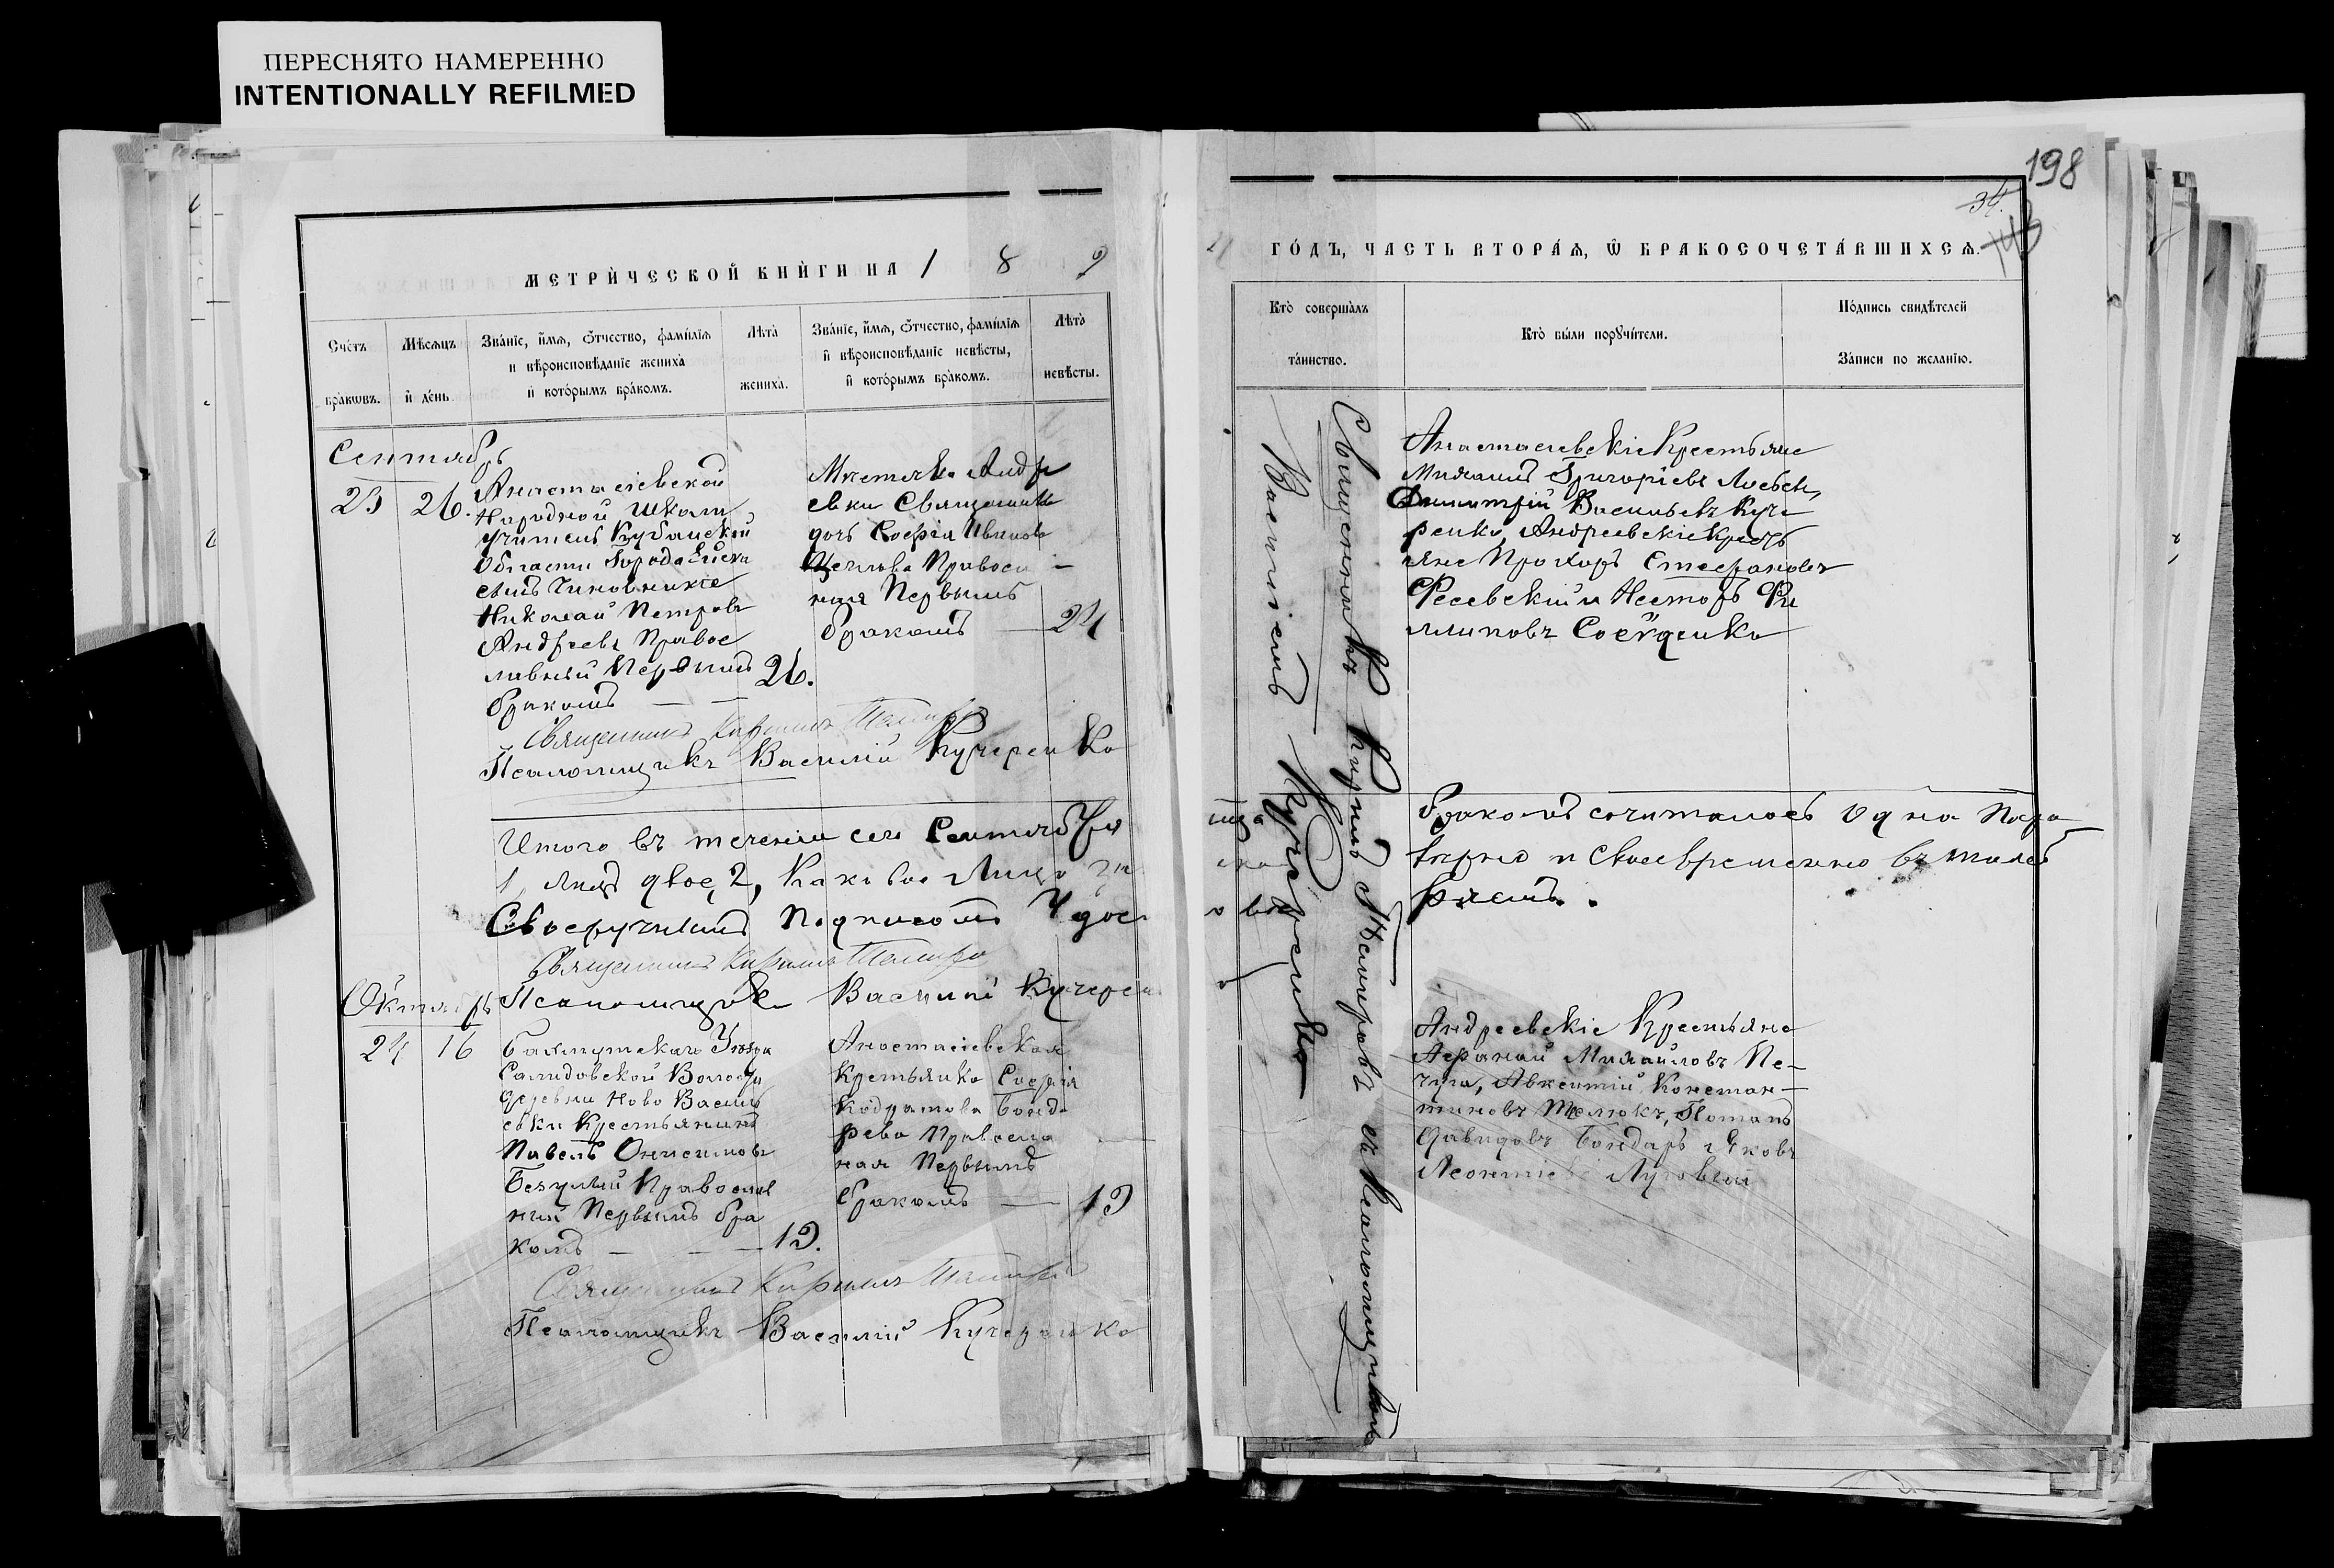 ПЕРЕСНЯТО НАМЕРЕННО
INTENTIONALLY REFILMED
МЕТРИ́ЧЕСКОЙ КНИ́ГИ НА 1 8 9
Сче́тъ бра́кѡвъ.
Мѣ́сѧцъ и҆ де́нь
Зва́нїе, и҆́мѧ, ѻ҆́тчество, фами́лїѧ
и вѣроисповѣ́данїе жениха̀
и҆ кото́рымъ бра́комъ.
Лѣ́та жениха̀.
Зва́нїе, и҆́мѧ, ѻ҆́тчество, фами́лїѧ
и҆ вѣроисповѣ́данїе невѣ́сты,
и҆ кото́рымъ бра́комъ.
Лѣ́та невѣ́сты.
Сентябрь
23 26.
Анастасіевской
Народной школы
учитель Кубанской
Области Города Ейска
сынъ Чиновника
Николай Петровъ
Андреевъ Правос
лавный Первымъ
бракомъ
26.
Местечка Андре
евки Священника
дочь Софія Иванова
Православ
ная Первымъ
бракомъ
24
Священникъ Кириллъ
Псаломщикъ Василій Кучеренко
Итого въ теченіи сего Сентября
1, лицъ двое, 2,
Своеручнымъ Подписомъ Удос
Священникъ Кириллъ
Октябрь
Псаломщикъ Василий Кучерен
24 16
Бахмутскаго Уезда
Волости
деревни Ново Василь
евки Крестьянинъ
Павелъ Онисимовъ
Православ
ный Первымъ бра
комъ
19.
Анастасіевская
Крестьянка Софія
Кодратова Бонда
рева Правосла
ная Первымъ
бракомъ
19
Священникъ Кириллъ
Псаломщикъ Василій Кучеренко
198
34.
ГО́ДЪ, ЧАСТЬ ВТОРА́Ѧ, Ѡ҆ БРАКОСОЧЕТА́ВШИХСѦ.
Кто̀ соверша́лъ та́инство.
Кто̀ бы́ли порꙋчи́тели.
По́дпись свидѣ́телей
За́писи по жела́нїю.
Священникъ Кирилъ съ Псаломщикомъ
Василіемъ Кучеренко
Анастасіевскіе Крестьяне
Михаилъ Григоріевъ
Димитрій Васильевъ Куче
ренко, Андреевскіе Кресть
яне Прохоръ Стефановъ
Фесевскій и Несторъ Фи
липовъ
бракомъ сочиталось одна пара
верно и своевременно
Андреевскіе Крестьяне
Афанасій Михайловъ Пе-
чуга, Авксентій Констан-
тиновъ Потапъ
Давидовъ Бондарь и Яковъ
Леонтіевъ Луговый